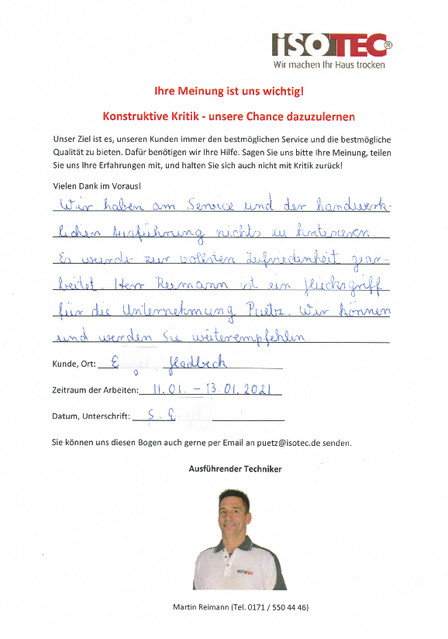 ISOTEC®
Wir machen Ihr Haus trocken
Ihre Meinung ist uns wichtig!
Konstruktive Kritik - unsere Chance dazuzulernen
Unser Ziel ist es, unseren Kunden immer den bestmöglichen Service und die bestmögliche
Qualität zu bieten. Dafür benötigen wir Ihre Hilfe. Sagen Sie uns bitte Ihre Meinung, teilen
Sie uns Ihre Erfahrungen mit, und halten Sie sich auch nicht mit Kritik zurück!
Vielen Dank im Voraus!
Wir haben am Service und der handwerk-
lichen Ausführung nichts zu kritisieren.
Es wurde zur vollsten Zufriedenheit gear-
beitet. Herr Reimann ist ein Glücksgriff
für die Unternehmung Puetz. Wir können
und werden Sie weiterempfehlen.
Kunde, Ort: E Gladbeck
Zeitraum der Arbeiten: 11.01. – 13.01.2021
Datum, Unterschrift: S. E
Sie können uns diesen Bogen auch gerne per Email an puetz@isotec.de senden.
Ausführender Techniker
Martin Reimann (Tel. 0171 / 550 44 46)